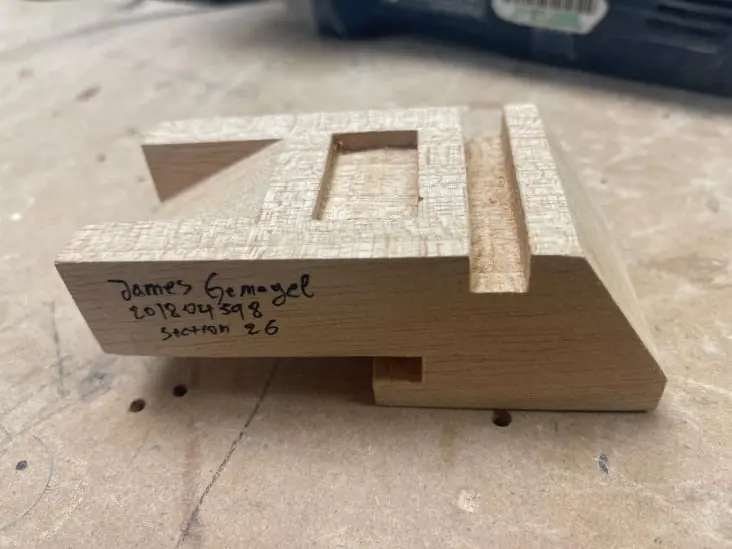 James Gemayel
201804598
section 26